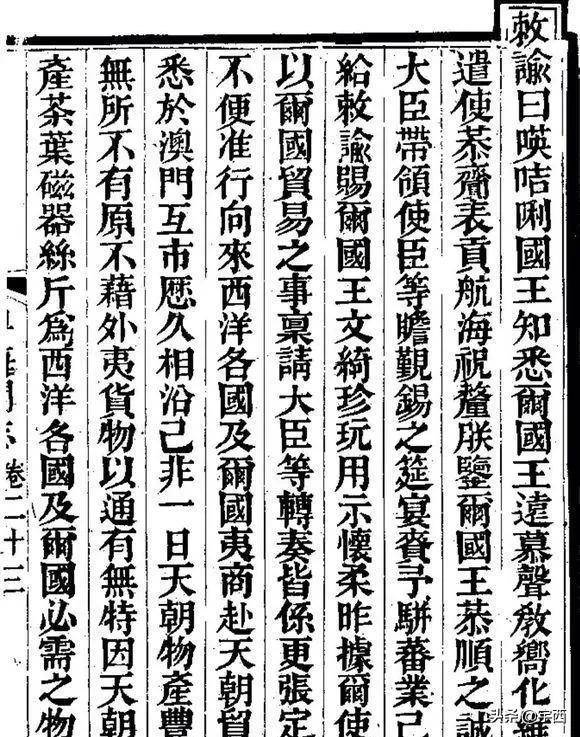 敕諭曰暎咭唎國王知悉爾國王遠慕聲教嚮化維
遣使恭齎表貢航海祝釐朕鑒爾國王恭順之誠
大臣帶領使臣等瞻覲錫之筵宴賚予駢蕃業已
給敕諭賜爾國王文綺珍玩用示懷柔昨據爾使
以爾國貿易之事稟請大臣等轉奏皆係更張定
不便准行向來西洋各國及爾國夷商赴天朝貿
悉於澳門互市歷久相沿已非一日天朝物產豐
無所不有原不藉外夷貨物以通有無特因天朝
產茶葉磁器絲斤為西洋各國及爾國必需之物
卷二十三
头条